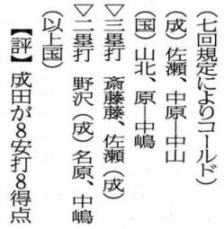 （七回規定によりコールド）
（成）佐瀬、中原―中山
（国）山北、原―中嶋
▽三塁打　斎藤藤、佐瀬（成）
▽二塁打　野沢（成）名原、中嶋
（以上国）
【評】成田が8安打8得点